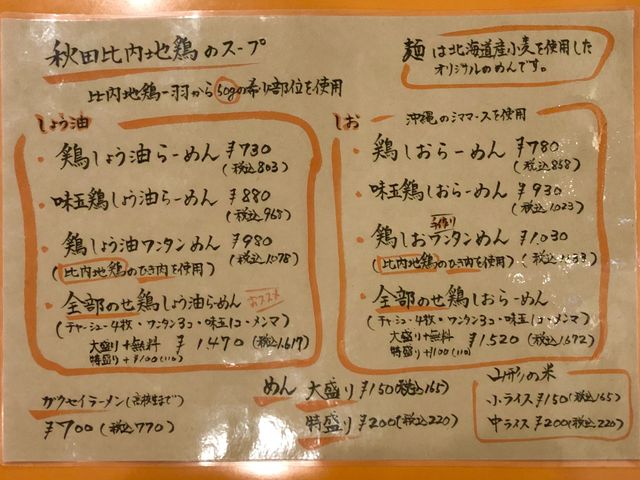 秋田比内地鶏のスープ
比内地鶏一羽から50gの希少部位を使用
麺は北海道産小麦を使用した
オリジナルのめんです。
しょう油
・鶏しょう油らーめん ¥730
(税込803)
・味玉鶏しょう油らーめん ¥880
(税込968)
・鶏しょう油ワンタンめん ¥980
(比内地鶏のひき肉を使用) (税込1,078)
・全部のせ鶏しょう油らーめん オススメ
(チャーシュー4枚・ワンタン3コ・味玉1コ・メンマ)
大盛り+無料 ¥1,470 (税込1,617)
特盛り+¥100(110)
しお 沖縄のシママースを使用
・鶏しおらーめん ¥780
(税込858)
・味玉鶏しおらーめん ¥930
(税込1023)
手作り
・鶏しおワンタンめん ¥1,030
(比内地鶏のひき肉を使用) (税込1,133)
・全部のせ鶏しおらーめん
(チャーシュー4枚・ワンタン3コ・味玉1コ・メンマ)
大盛り+無料 ¥1,520 (税込1,672)
特盛り+¥100(110)
ガクセイラーメン(高校生まで)
¥700 (税込770)
めん 大盛り ¥150(税込165)
特盛り ¥200(税込220)
山形の米
小ライス ¥150(税込165)
中ライス ¥200(税込220)